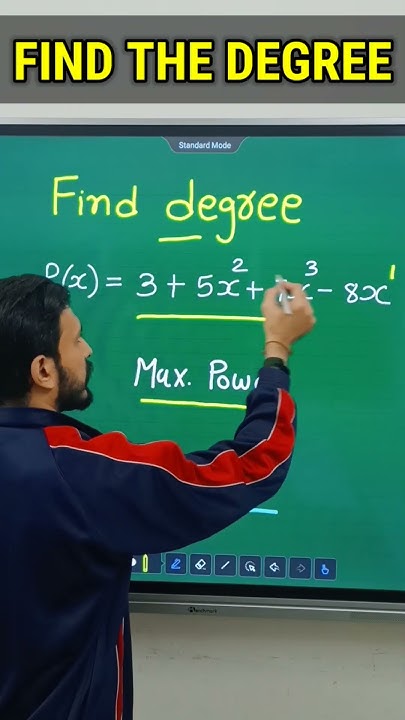 FIND THE DEGREE
Standard Mode
Find degree
P(x) = 3 + 5x² + x³ - 8x¹
Max.